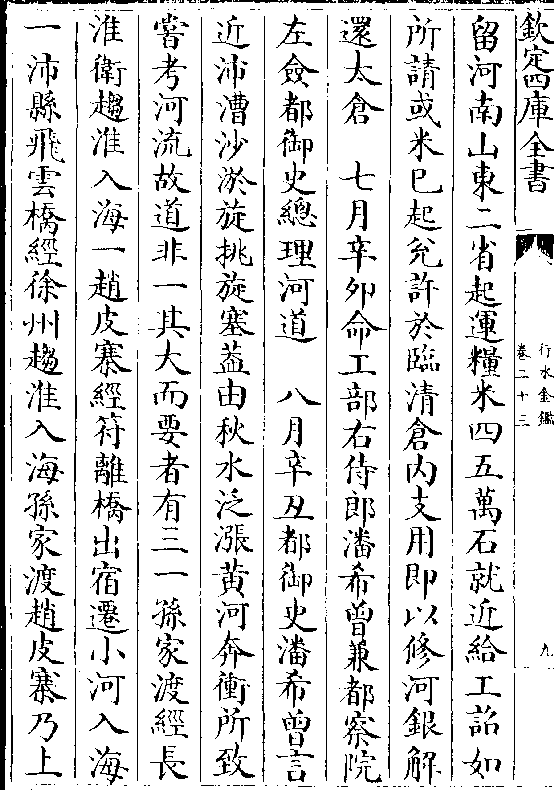 欽定四庫全書
行水金鑑
卷二十三
九
留河南山東二省起運糧米四五萬石就近給工詔如
所請或米已起兊許於臨清倉内支用即以修河銀解
還太倉　七月辛夘命工部右侍郎潘希曾兼都察院
左僉都御史總理河道　八月辛丑都御史潘希曾言
近沛漕沙淤旋挑旋塞葢由秋水泛漲黄河奔衝所致
嘗考河流故道非一其大而要者有三一孫家渡經長
淮衛趨淮入海一趙皮寨經符離橋出宿遷小河入海
一沛縣飛雲橋經徐州趨淮入海孫家渡趙皮寨乃上